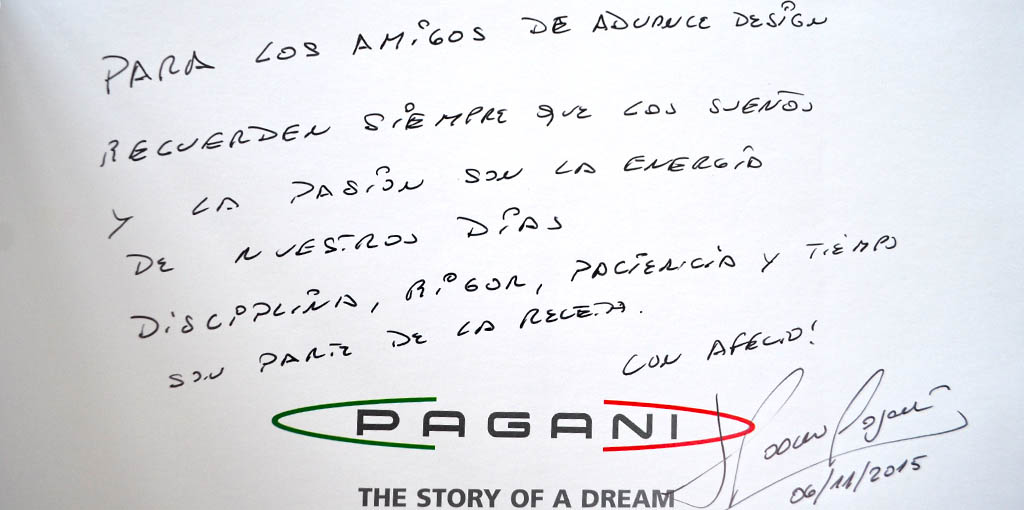 PARA LOS AMIGOS DE ADVANCE DESIGN
RECUERDEN SIEMPRE QUE LOS SUEÑOS
Y LA PASIÓN SON LA ENERGÍA
DE NUESTROS DÍAS
DISCIPLINA, RIGOR, PACIENCIA Y TIEMPO
SON PARTE DE LA RECETA.
CON AFECTO!
PAGANI
Horacio Pagani
THE STORY OF A DREAM
06/11/2015